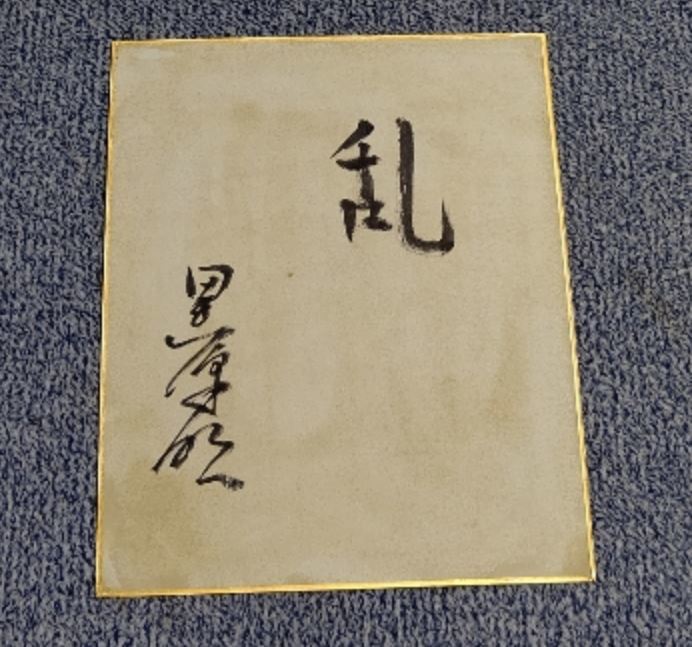 乱
黒澤明